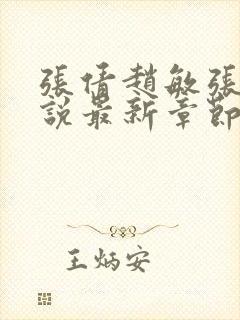 張倩趙敏張
說最新章節
王炳安